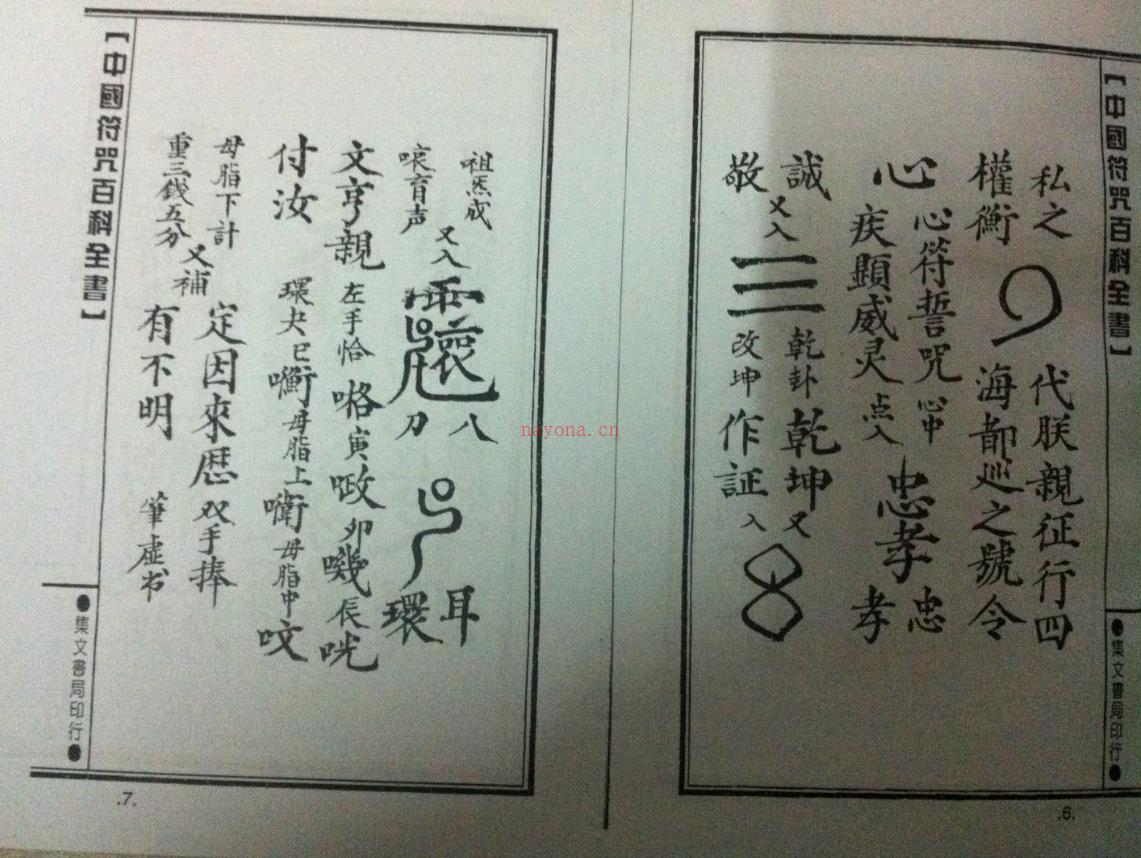 【中國符咒百科全書】
私之
權衡
代朕親征行四
海都巡之號令
心
心符誓咒 心中
疾顯威灵 点入
忠孝
忠
孝
誠
敬
又入
三
乾卦
改坤
乾坤又
作証入
集文書局印行
.6.
祖炁成
哀育声
又入
八
刀
耳
環
文亨親
左手恰
咯寅呶卯嘰辰咣
付汝
環夬巳
母脂上
母脂中
咬
母脂下計
重三錢五分
又補
定因來歷 双手捧
有不明 筆虛书
【中國符咒百科全書】
集文書局印行
.7.
nayona.cn